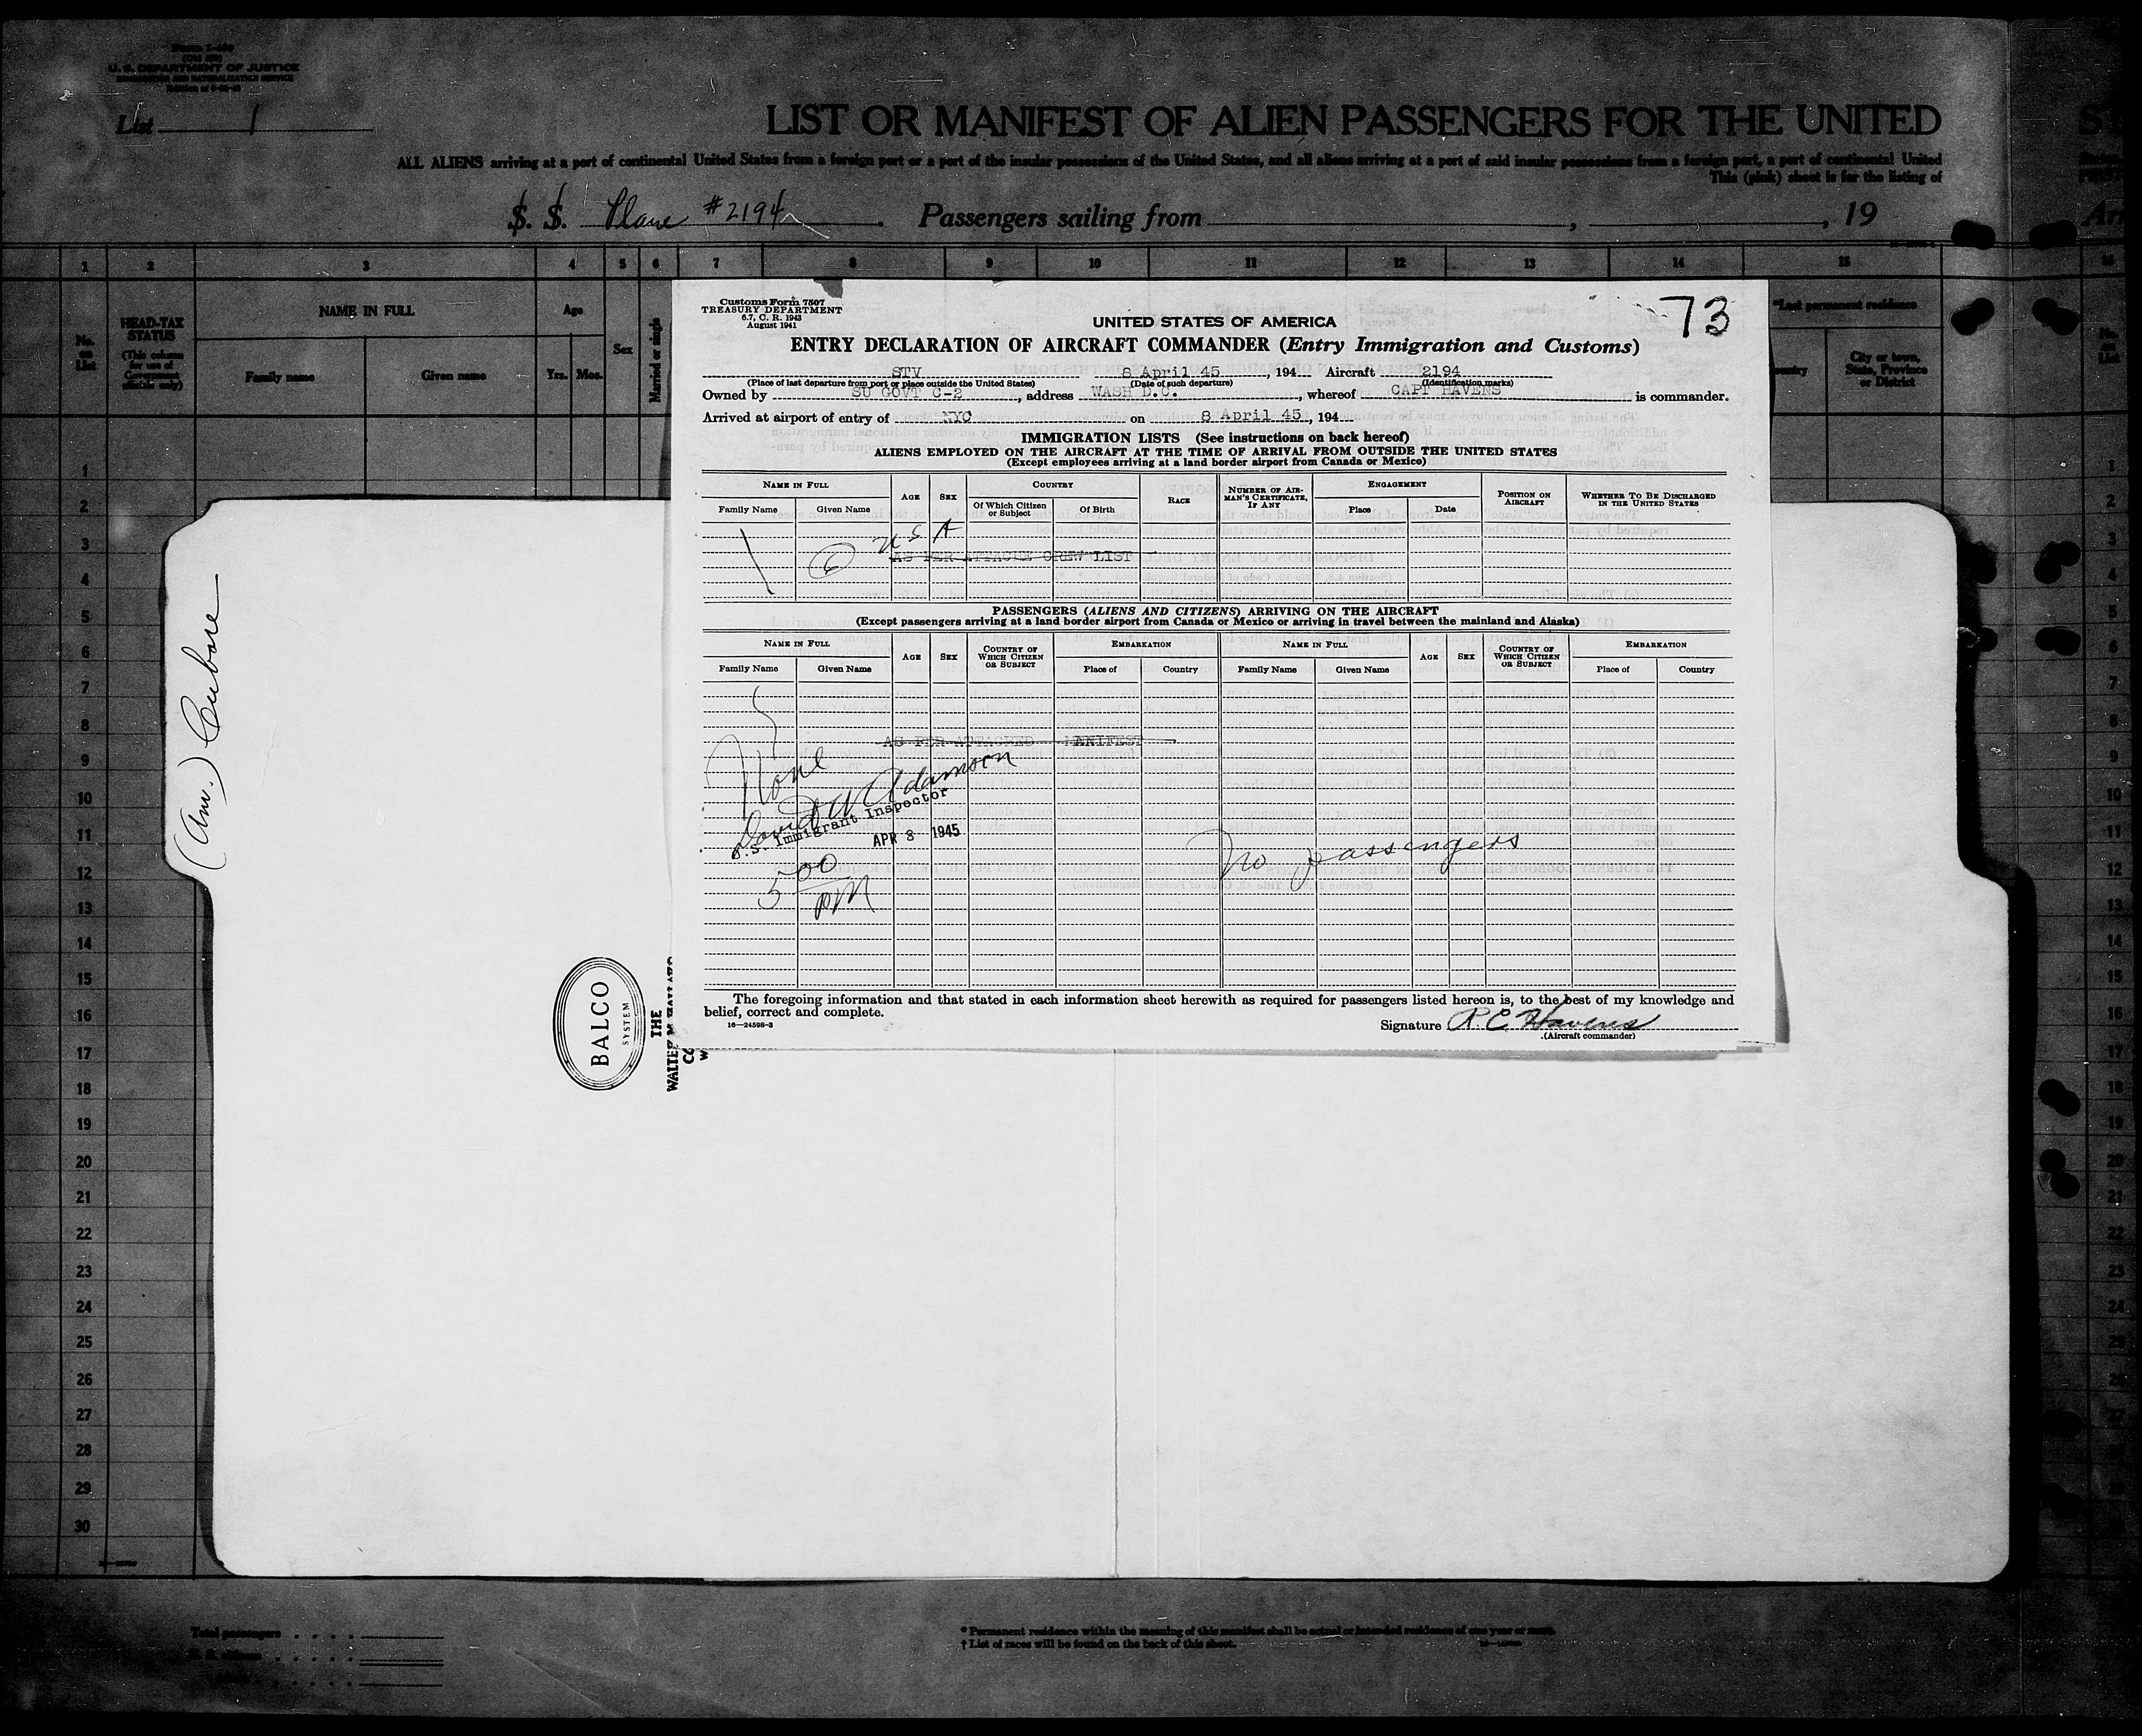 U. S. DEPARTMENT OF JUSTICE
IMMIGRATION AND NATURALIZATION SERVICE
List 1
LIST OR MANIFEST OF ALIEN PASSENGERS FOR THE UNITED
ALL ALIENS arriving at a port of continental United States from a foreign port or a port of the insular possessions of the United States, and all aliens arriving at a port of said insular possessions from a foreign port, a port of continental United
This (pink) sheet is for the listing of
S. S. Plane #2194 Passengers sailing from , , 19
1 2 3 4 5 6 7 8 9 10 11 12 13 14 15
No. on List
HEAD-TAX STATUS
(This column for use of Government officials only)
NAME IN FULL
Family name Given name
Age
Yrs. Mos.
Sex
Married or single
*Last permanent residence
City or town, State, Province or District
Customs Form 7507
TREASURY DEPARTMENT
6.7, C. R. 1943
August 1941
73
UNITED STATES OF AMERICA
ENTRY DECLARATION OF AIRCRAFT COMMANDER (Entry Immigration and Customs)
STV 8 April 45, 194 Aircraft 2194
(Place of last departure from port or place outside the United States) (Date of such departure) (Identification marks)
Owned by SU GOVT C-2, address WASH D.C., whereof CAPT HAVENS is commander.
Arrived at airport of entry of NYC on 8 April 45, 194
IMMIGRATION LISTS (See instructions on back hereof)
ALIENS EMPLOYED ON THE AIRCRAFT AT THE TIME OF ARRIVAL FROM OUTSIDE THE UNITED STATES
(Except employees arriving at a land border airport from Canada or Mexico)
NAME IN FULL AGE SEX COUNTRY RACE NUMBER OF AIRMAN'S CERTIFICATE, IF ANY ENGAGEMENT POSITION ON AIRCRAFT WHETHER TO BE DISCHARGED IN THE UNITED STATES
Family Name Given Name Of Which Citizen or Subject Of Birth Place Date
6 U S A
AS PER ATTACHE CREW LIST
PASSENGERS (ALIENS AND CITIZENS) ARRIVING ON THE AIRCRAFT
(Except passengers arriving at a land border airport from Canada or Mexico or arriving in travel between the mainland and Alaska)
NAME IN FULL AGE SEX COUNTRY OF WHICH CITIZEN OR SUBJECT EMBARKATION NAME IN FULL AGE SEX COUNTRY OF WHICH CITIZEN OR SUBJECT EMBARKATION
Family Name Given Name Place of Country Family Name Given Name Place of Country
AS PER ATTACHED MANIFEST
None
David W Adamson
U.S. Immigrant Inspector
APR 8 1945
No passengers
5 00
PM
The foregoing information and that stated in each information sheet herewith as required for passengers listed hereon is, to the best of my knowledge and
belief, correct and complete.
16—24598-3
Signature R. E. Havens
(Aircraft commander)
(Am.)
BALCO
SYSTEM
THE
1
2
3
4
5
6
7
8
9
10
11
12
13
14
15
16
17
18
19
20
21
22
23
24
25
26
27
28
29
30
Total passengers
* Permanent residence within the meaning of this manifest shall be actual or intended residence of one year or more.
† List of races will be found on the back of this sheet.